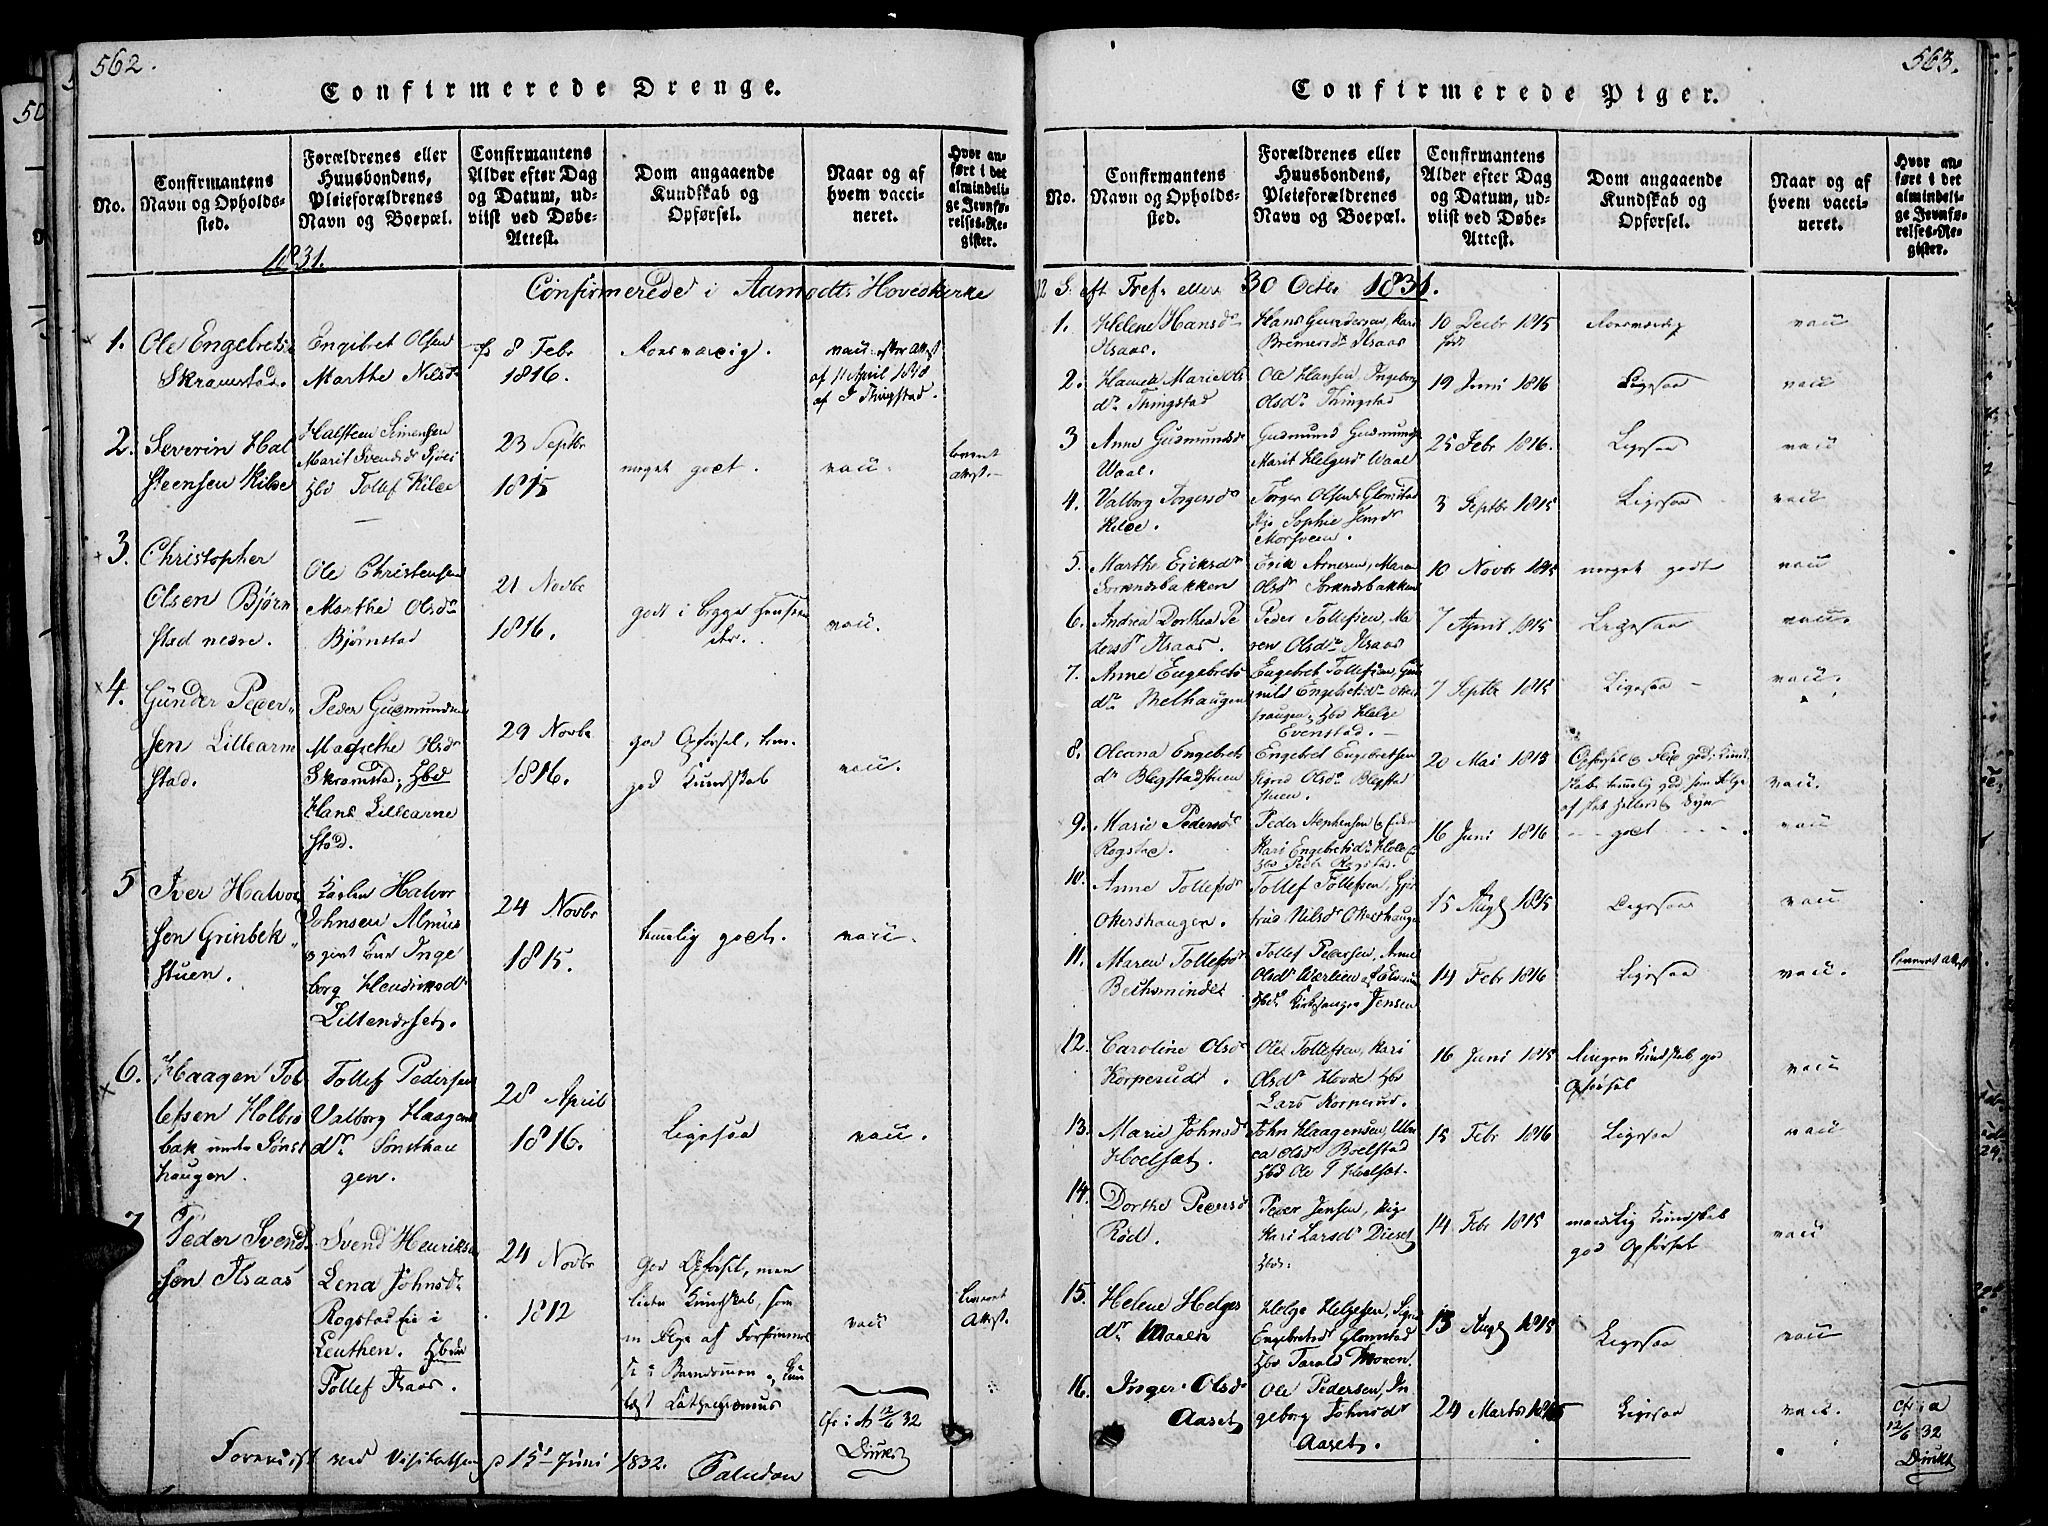 562.
Confirmerede Drenge.
No.
Confirmantens
Navn og Opholds-
sted.
Forældrenes eller
Huusbondens,
Pleieforældrenes
Navn og Boepæl.
Confirmantens
Alder efter Dag
og Datum, ud-
viist ved Døbe-
Attest.
Dom angaaende
Kundskab og
Opførsel.
Naar og af
hvem vacci-
neret.
Hvor an-
ført i det
almindeli-
ge Jevnfø-
relses-Re-
gister.
1831.
Confirmerede i Aamodts Hovedkirke
1.
Ole Engebrets
Skramstad.
Engebret Olsen
Marthe Nilsdr
8 Febr
1816.
vacc. efter Attest
af 11 April 1818
af J Thingstad.
2.
Severin Hal
steensen Kilde
Halsteen Simensen
Marit Svendsdr
Hbd Tollef Kilde
23 Septbr
1815
meget godt.
vacc.
leveret
Attest.
3.
Christopher
Olsen Bjørn
stad nedre.
Ole Christensen
Marthe Olsdr
Bjørnstad
21 Novbr
1816.
godt i begge Henseen
der.
vacc.
4.
Gunder Peder-
sen Lillearn
stad.
Peder Gudmundsen
Magrethe Olsdr
Skramstad; Hbd
Hans Lillearne
stad.
29 Novbr
1816.
god Opførsel, tem.
god Kundskab
vacc.
5
Iver Halvor
sen Grinbek-
stuen.
Halvor
Johnsen Almus
Inge
borg Hendriksdr
Lillendset.
24 Novbr
1815.
temelig godt.
vacc.
6.
Haagen Tol
lefsen Holbes
bak under Sønst
haugen.
Tollef Pedersen
Valborg Haagens
dr Sønsthau
gen.
28 April
1816.
Ligesaa
vacc.
7
Peder Svend-
sen Asaas
Svend Henriks
Lena Johnsdr
Rogstad Eie i
Leuthen. Hbd
Tollef Asaas.
24 Novbr
1812
God Opførsel, men
liden Kundskab, som
en Følge af Forsømmel
se i Barndommen og kun
læst Cathechismus
vacc
leveret
Attest.
12/6 32
Diriks
Foreviist ved Visitatsen d 15d Juni 1832. Paludan
563.
Confirmerede Piger.
No.
Confirmantens
Navn og Opholds-
sted.
Forældrenes eller
Huusbondens,
Pleieforældrenes
Navn og Boepæl.
Confirmantens
Alder efter Dag
og Datum, ud-
viist ved Døbe-
Attest.
Dom angaaende
Kundskab og
Opførsel.
Naar og af
hvem vacci-
neret.
Hvor an-
ført i det
almindeli-
ge Jevnfø-
relses-Re-
gister.
S. eft Tref. eller 30 Octbr 1831.
1.
Helene Hansdr
Asaas.
Hans Gundersen, Kari
Asaas
10 Decbr 1815
født
vacc
2.
Marie Ols
dr Thingstad
Ole Hansen, Ingeborg
Olsdr Thingstad
19 Juni 1816
Ligesaa
vacc
3
Anne Gudmundsdr
Waal.
Gudmund Gudmunds
Marit Helgesdr Waal
25 Febr 1816.
Ligesaa
vacc
4.
Valborg Torgersdr
Kilde.
Torger Olsen Glomstad
Sophie Jensdr
Morsveen.
3 Septbr 1815
Ligesaa
vacc
5.
Marthe Eriksdr
Strandsbakken
Erik Arnesen, Maren
Olsdr Strandsbakken
10 Novbr 1815
meget godt
vacc
6.
Andrea Dorthea Pe
dersdr Asaas.
Peder Tollefsen, Ma
ren Olsdr Asaas
7 April 1815
Ligesaa
vacc.
7.
Anne Engebrets
dr Melhaugen
Engebret Tollefsen, Gun
nild Engebretsdr Otters
haugen; Hbd Helge
Evenstad.
7 Septbr 1815
Ligesaa
vacc.
8.
Oleana Engebrets
dr Blegstadstuen
Engebret Engebretsen
Sigrid Olsdr Blegstad
stuen.
20 Mai 1815
Opførsel og Flid god; Kund
skab temelig god som Følge
af Syn
vacc.
9.
Marie Pedersdr
Rogstad.
Peder Stephensen
Kari Engebretsdr
Hbd Peder Rogstad.
16 Juni 1816
godt
vacc
10.
Anne Tollefsdr
Ottershaugen.
Tollef Tollefsen, Gjer
trud Nilsdr Ottershaugen
15 Augst 1815
Ligesaa
vacc
11.
Maren Tollefsdr
Beckomindet
Tollef Pedersen, Anne
Olsdr
Hbdr Kirkesanger Jensen
14 Febr 1816
Ligesaa
vacc.
leveret Attest
12.
Caroline Olsdr
Korperud.
Ole Tollefsen, Kari
Olsdr Hovde Hbd
Lars Korperud.
16 Juni 1815
Ringen Kundskab god
Opførsel
vacc
13.
Marie Johnsdr
Hoelsæt.
John Haagensen,
Olsdr Boelstad
Hbd Ole T Hoelsæt.
15 Febr 1816
Ligesaa
vacc
14.
Dorthe Pedersdr
Rød.
Peder Jensen, Pige
Kari Larsdr Dieset
Hbdr:
14 Febr 1815
maadelig Kundskab
god Opførsel
vacc
15.
Helene Helges
dr Moren
Helge Helgesen, Sigri
Engebretsdr Glomstad
Hbd Tarald Moren.
13 Augst 1815
Ligesaa
vacc
16.
Inger Olsdr
Aaset
Ole Pedersen, In
geborg Johnsdr
Aaset.
24 Marts 1815
Ligesaa
vacc.
12/6 32
Dirikt